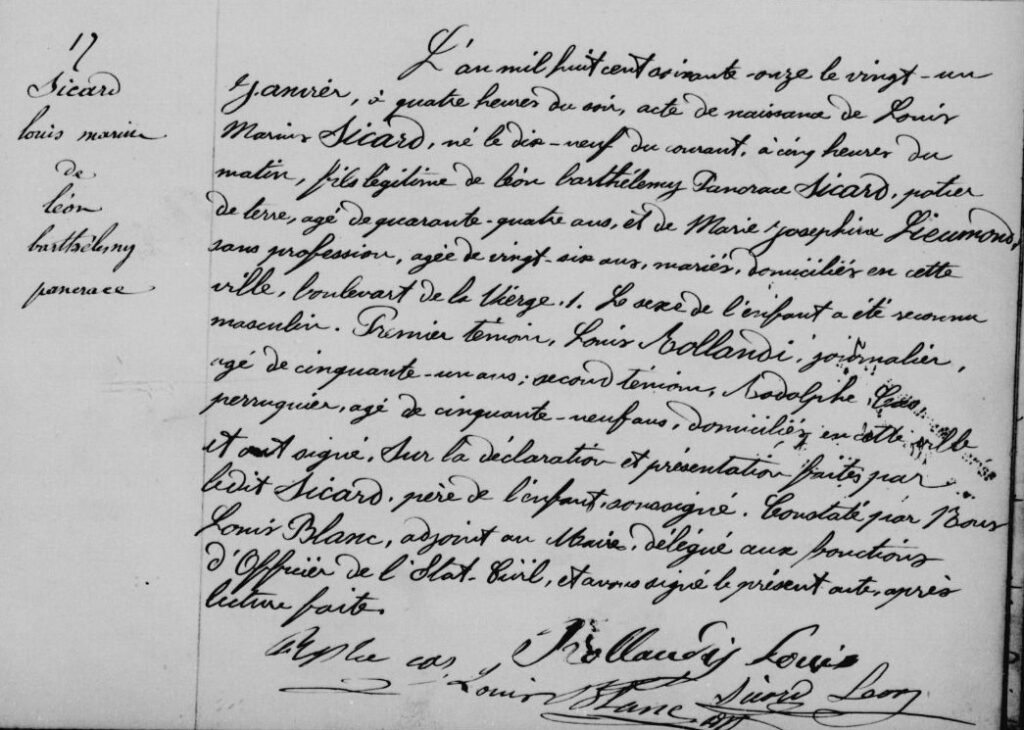 17
Sicard
louis marius
de
léon
barthélemy
pancrace
L'an mil huit cent soixante-onze le vingt-un
Janvier, à quatre heures du soir, acte de naissance de Louis
Marius Sicard, né le dix-neuf du courant, à cinq heures du
matin, fils légitime de léon barthélemy Pancrace Sicard, potier
de terre, agé de quarante-quatre ans, et de Marie Joséphine Lieumond,
sans profession, agée de vingt-six ans, mariés, domiciliés en cette
ville, boulevart de la Vièrge, 1. Le sexe de l'enfant a été reconnu
masculin. Premier témoin, Louis Rollandi, journalier,
agé de cinquante-un ans; second témoin, Rodolphe Cas,
perruquier, agé de cinquante-neuf ans, domiciliés en cette ville
et ont signé, Sur la déclaration et présentation faites par
ledit Sicard, père de l'enfant, soussigné. Constaté par Nous
Louis Blanc, adjoint au Maire, délégué aux fonctions
d'Officier de l'Etat-Civil, et avons signé le présent acte, après
lecture faite.
cas Rollandy Louis
Louis Blanc Sicard Leon